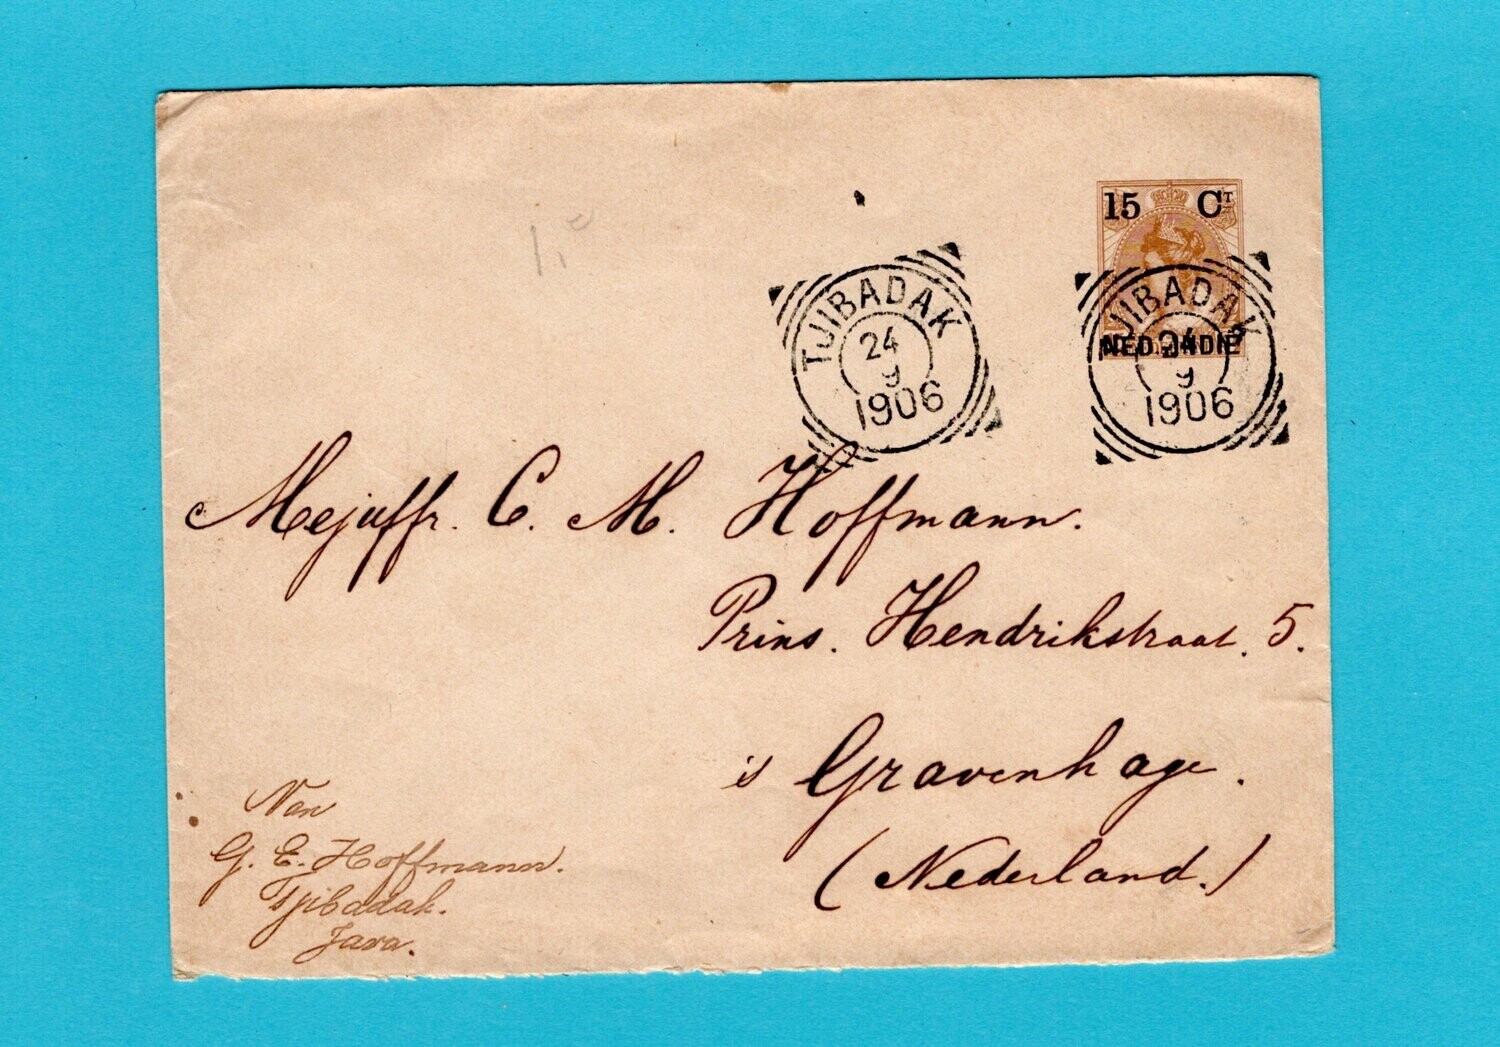 15 Cᵀ
NED.INDIË
TJIBADAK
24
9
1906
TJIBADAK
24
9
1906
Mejuffr. C. M. Hoffmann.
Prins. Hendrikstraat. 5.
's Gravenhage.
(Nederland.)
Van
G. E. Hoffmann.
Tjibadak.
Java.